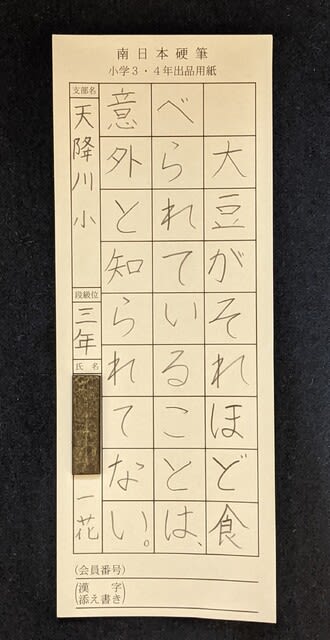 南日本硬筆
小学3・4年出品用紙
大豆がそれほど食
べられていることは、
意外と知られてない。
支部名
天降川小
段級位
三年
氏名
一花
(会員番号)
(漢字添え書き)